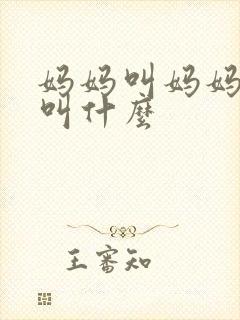 妈妈叫妈妈
叫什麼
王審知